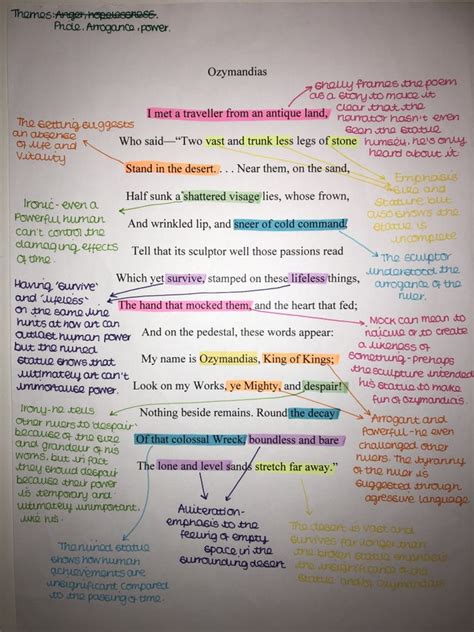 Themes: Anger, hopelessness.
Pride, Arrogance, power.
Ozymandias
Shelly frames the poem
as a story to make it
clear that the
narrator hasn't even
seen the statue
himself, he's only
heard about it
I met a traveller from an antique land,
The setting suggests
an absence
of life and
vitality
Who said—“Two vast and trunk less legs of stone
Stand in the desert. . . . Near them, on the sand,
Emphasis
size and
stature but
also shows the
statue is
incomplete
Half sunk a shattered visage lies, whose frown,
Ironic- even a
powerful human
can't control the
damaging effects
of time.
And wrinkled lip, and sneer of cold command,
The sculptor
understood the
arrogance of the
ruler.
Tell that its sculptor well those passions read
Which yet survive, stamped on these lifeless things,
Having 'survive'
and 'lifeless'
on the same line
hints at how art can
outlast human power
but the ruined
statue shows that
ultimately art can't
immortalise power.
The hand that mocked them, and the heart that fed;
Mock can mean to
ridicule or to create
a likeness of
something- prehaps
the sculpture intended
his statue to make
fun of ozymandias.
And on the pedestal, these words appear:
My name is Ozymandias, King of Kings;
Look on my Works, ye Mighty, and despair!
Irony- he tells
other rulers to 'despair'
because of the size
and grandeur of his
works. but in fact
they should despair
because their power
is temporary and
ultimately unimportant.
like his.
Arrogant and
Powerful- he even
challenged other
rulers. The tyranny
of the ruler is
suggested through
agressive language
Nothing beside remains. Round the decay
Of that colossal Wreck, boundless and bare
The lone and level sands stretch far away.”
Aliteration-
emphasis to the
feeling of empty
space in the
surrounding desert
The desert is vast and
survives far longer than
the broken statue emphasis
the insignificance of the
statue and
The ruined statue
shows how human
achievements are
insignificant compared
to the passing of time.